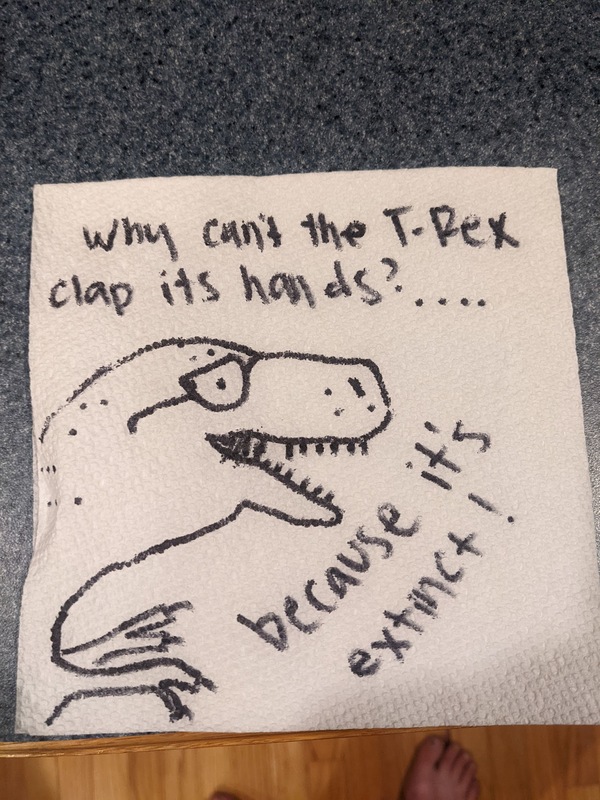 Why can't the T-Rex
clap its hands?....
because it's
extinct!